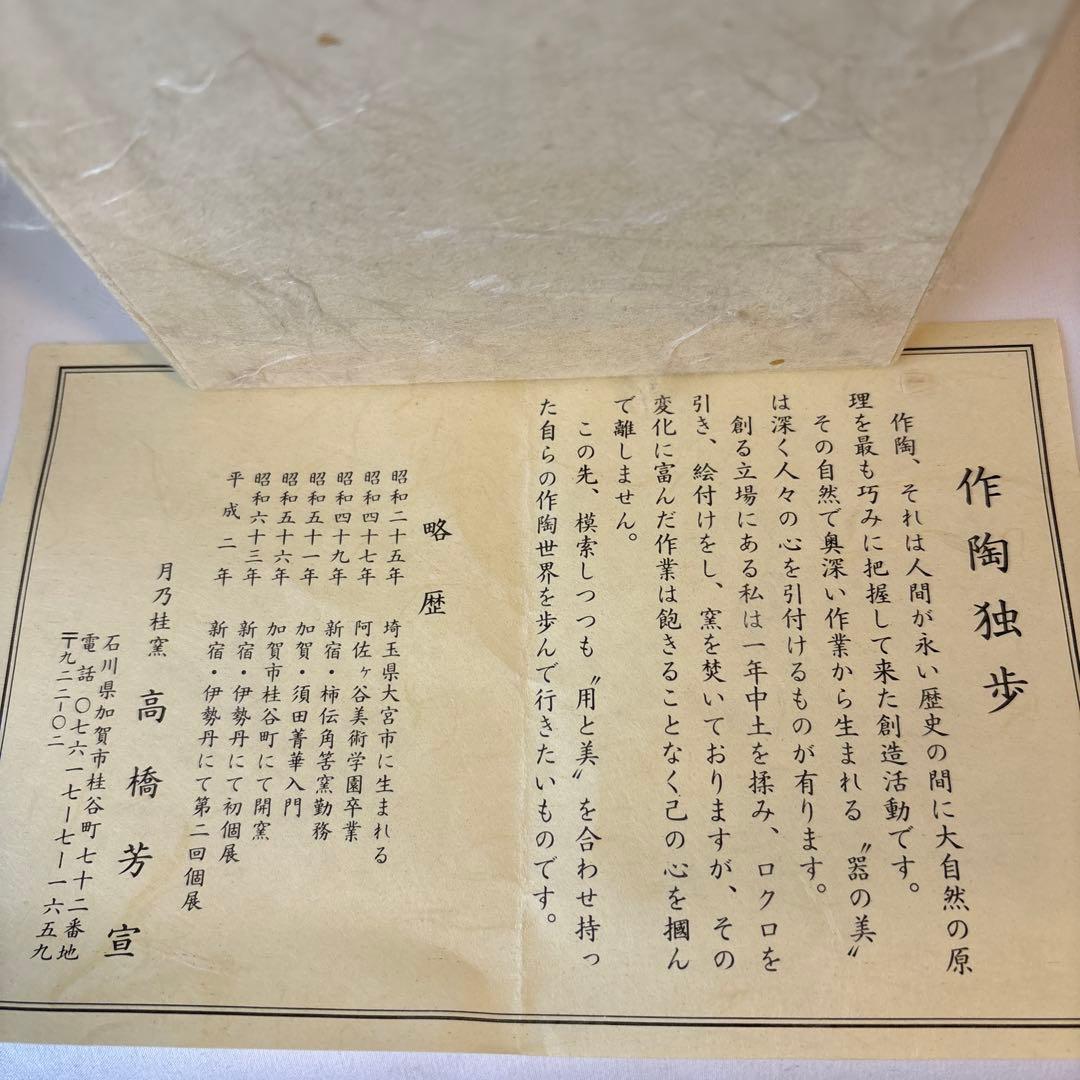 作陶独歩
作陶、それは人間が永い歴史の間に大自然の原
理を最も巧みに把握して来た創造活動です。
その自然で奥深い作業から生まれる〝器の美〟
は深く人々の心を引付けるものが有ります。
創る立場にある私は一年中土を揉み、ロクロを
引き、絵付けをし、窯を焚いておりますが、その
変化に富んだ作業は飽きることなく己の心を摑ん
で離しません。
この先、模索しつつも〝用と美〟を合わせ持っ
た自らの作陶世界を歩んで行きたいものです。
略歴
昭和二十五年 埼玉県大宮市に生まれる
昭和四十七年 阿佐ヶ谷美術学園卒業
昭和四十九年 新宿・柿伝角筈窯勤務
昭和五十一年 加賀・須田菁華入門
昭和五十六年 加賀市桂谷町にて開窯
昭和六十三年 新宿・伊勢丹にて初個展
平成二年 新宿・伊勢丹にて第二回個展
月乃桂窯 高橋芳宣
石川県加賀市桂谷町七十二番地
電話〇七六一七-七-一六五九
〒九二二-〇二